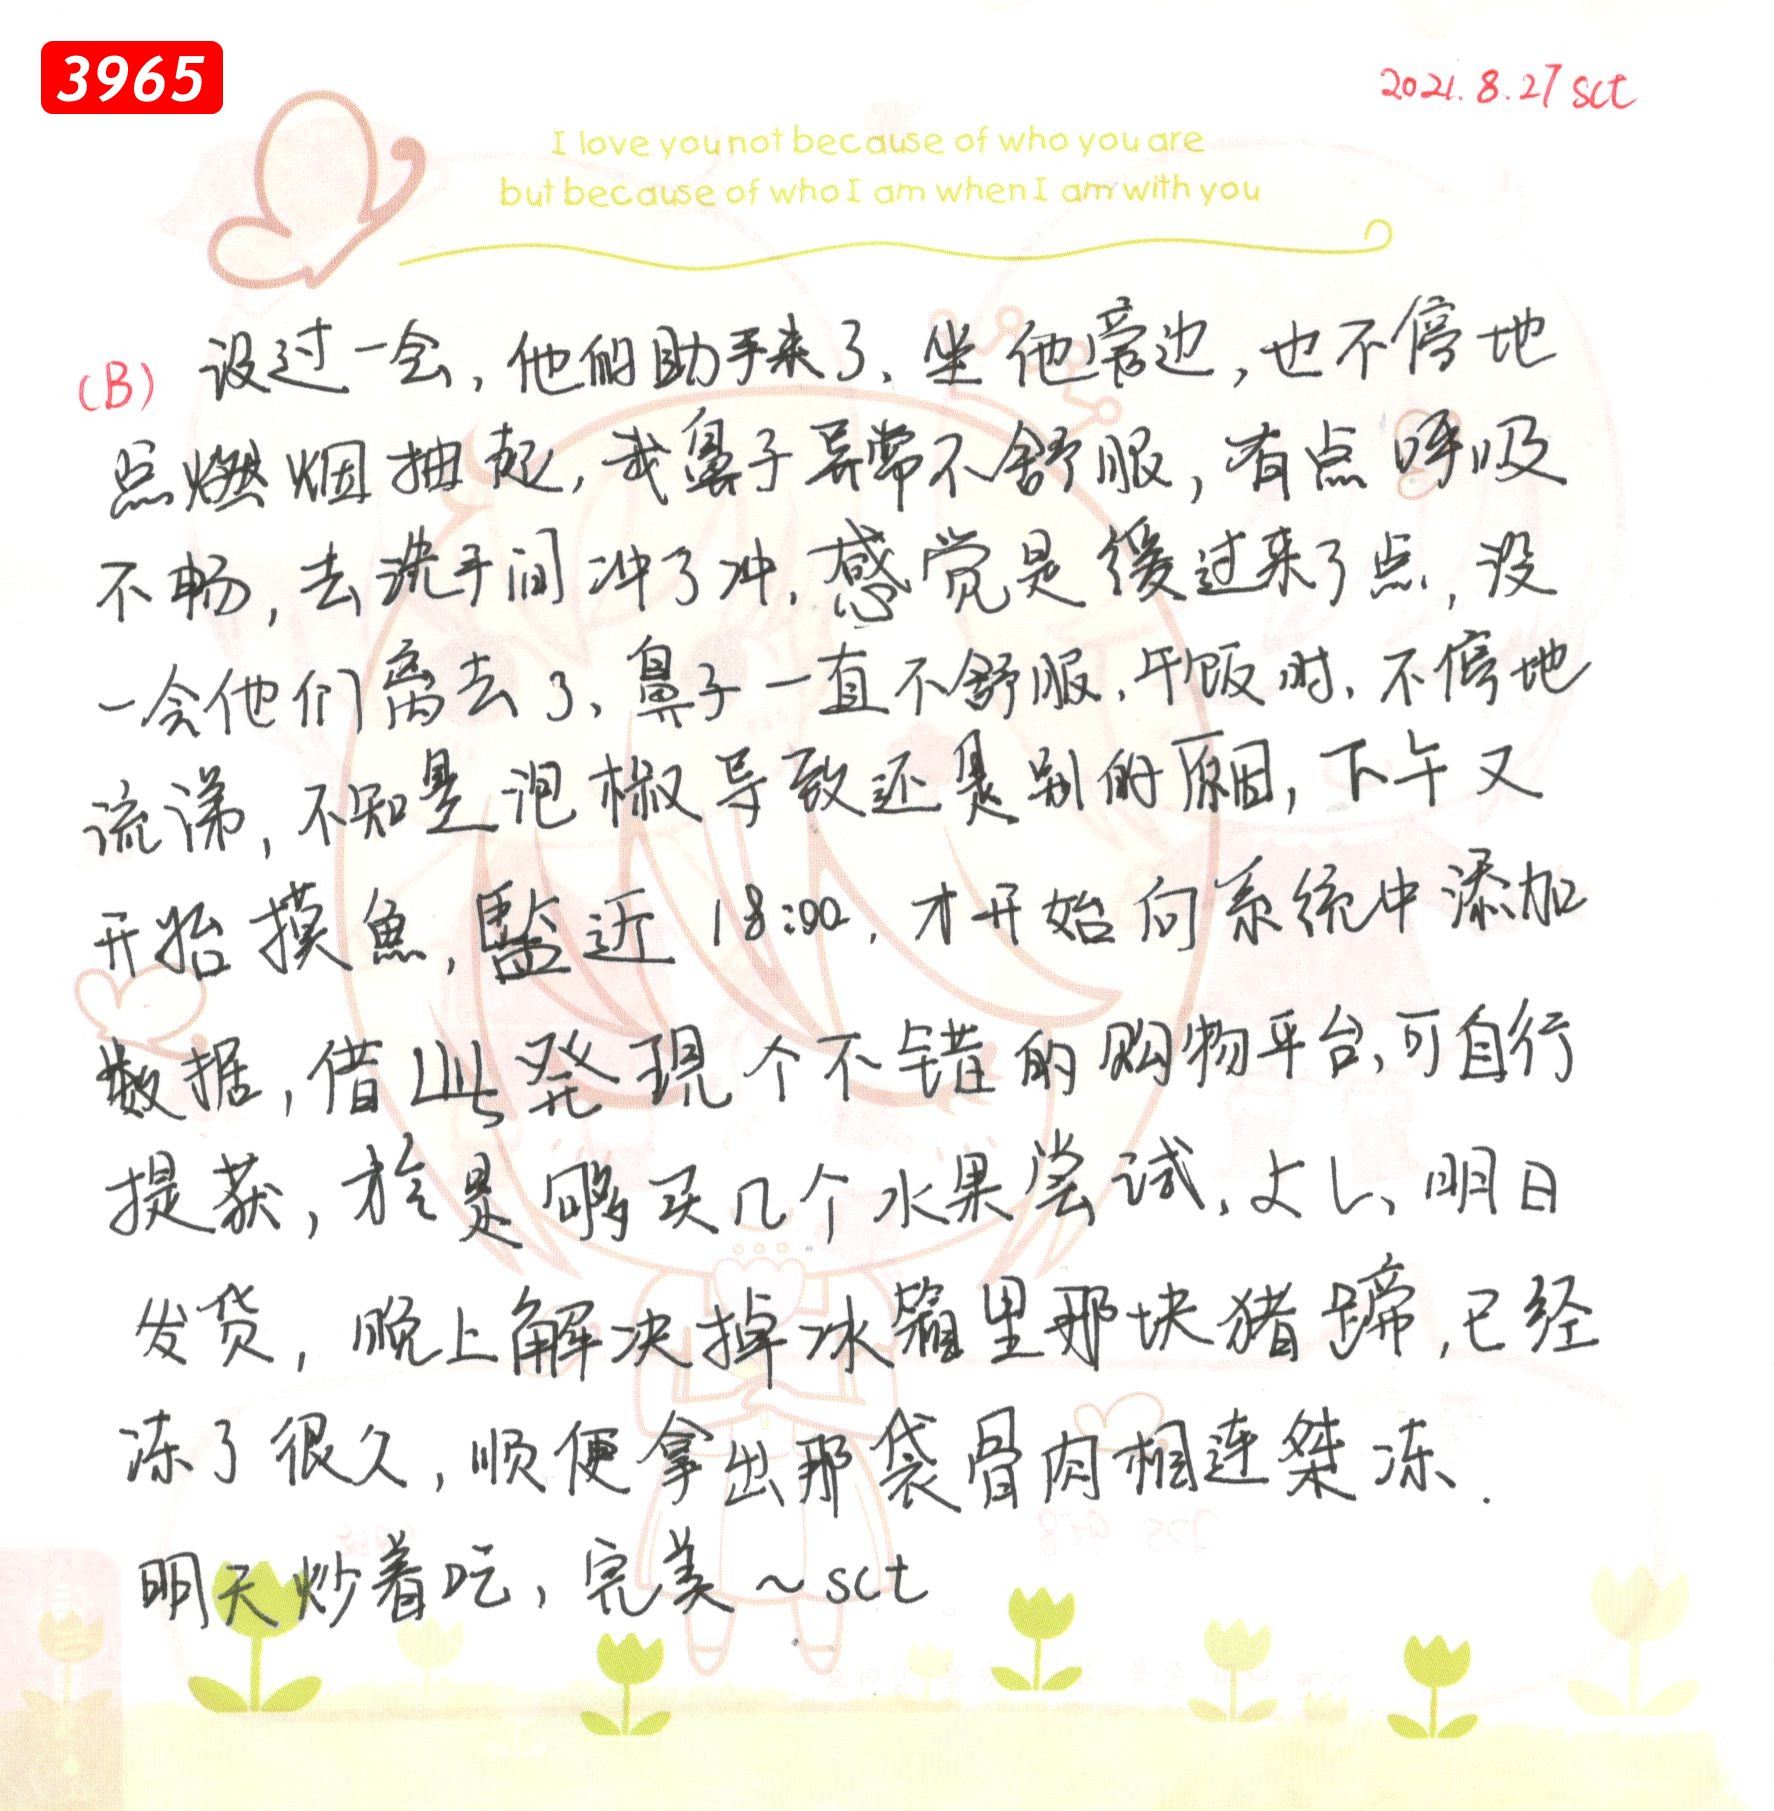 3965
2021.8.27 sct
I love you not because of who you are
but because of who I am when I am with you
(B) 没过一会，他的助手来了、坐他旁边，也不停地
点燃烟抽起，我鼻子异常不舒服，有点呼吸
不畅，去洗手间冲了冲，感觉是缓过来了点，没
一会他们离去了、鼻子一直不舒服，午饭时、不停地
流涕，不知是泡椒导致还是别的原因，下午又
开始摸魚，監近 18:00，才开始向系统中添加
数据，借此発現个不错的购物平台、可自行
提获，於是够买几个水果尝试，よし、明日
发货，晚上解决掉冰箱里那块猪蹄，已经
冻了很久，顺便拿出那袋骨肉相连桀冻．
明天炒着吃，完美～sct